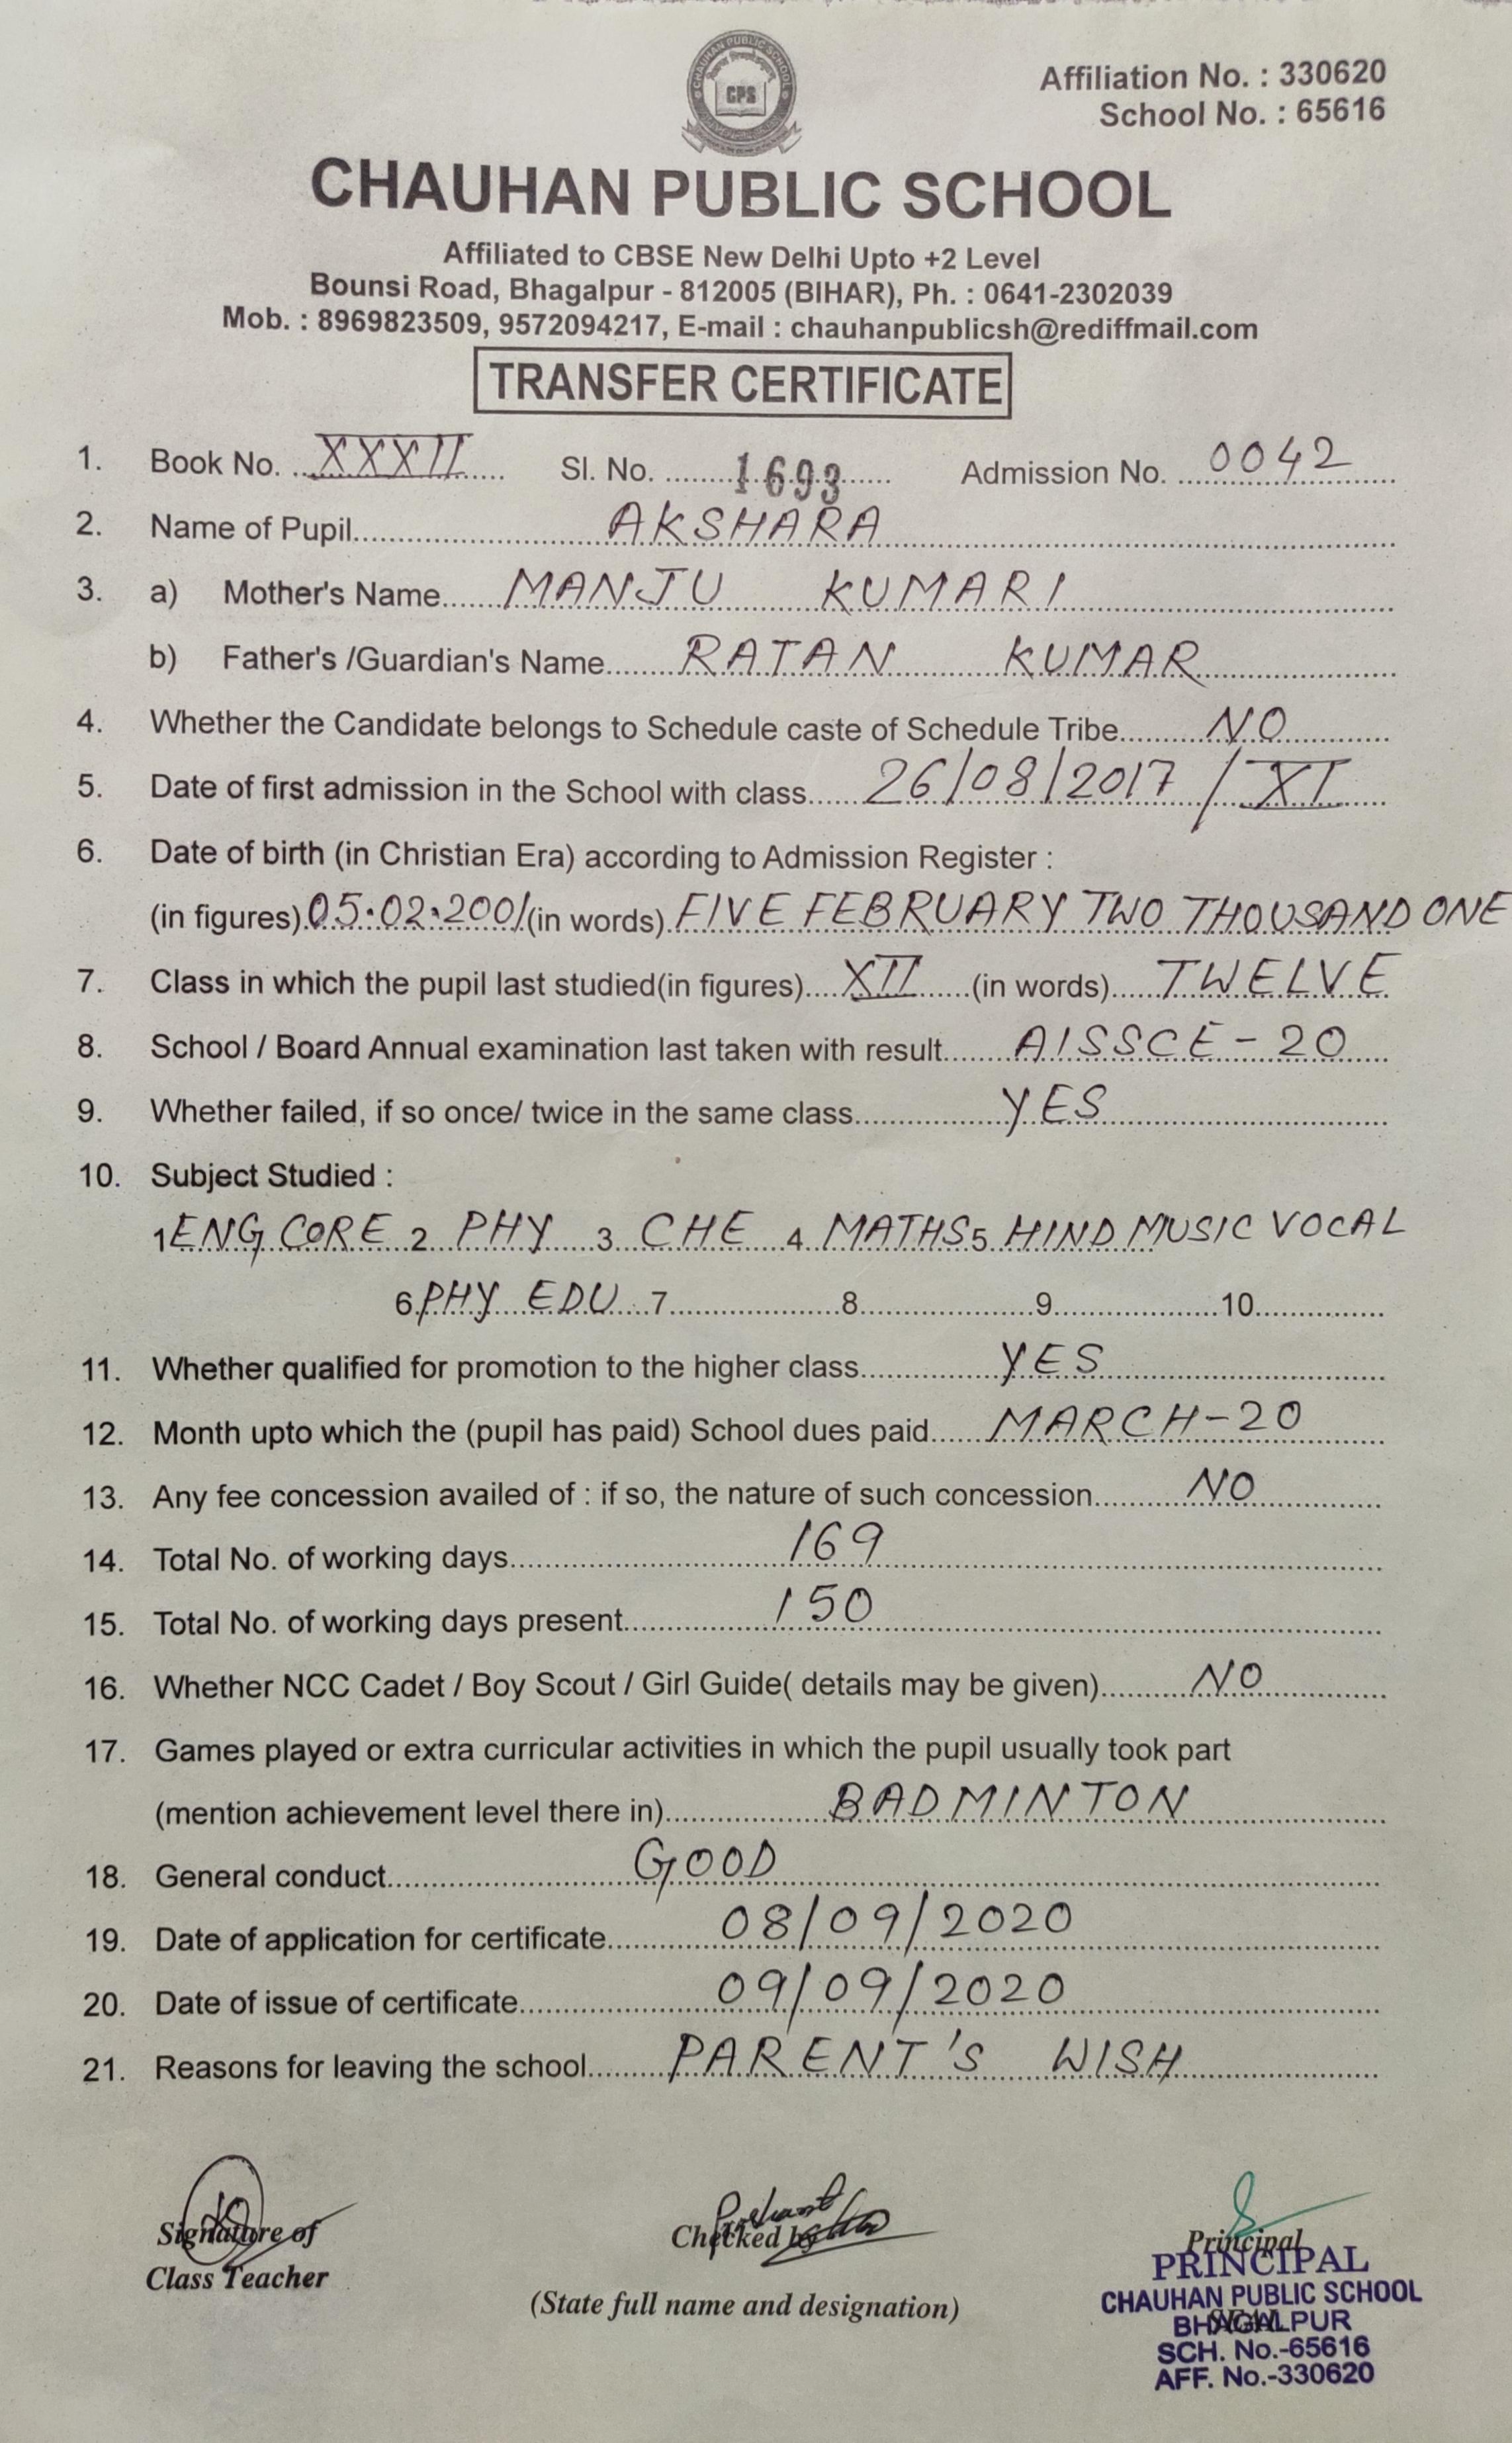 CHAUHAN PUBLIC SCHOOL
CPS
Affiliation No. : 330620
School No. : 65616
CHAUHAN PUBLIC SCHOOL
Affiliated to CBSE New Delhi Upto +2 Level
Bounsi Road, Bhagalpur - 812005 (BIHAR), Ph. : 0641-2302039
Mob. : 8969823509, 9572094217, E-mail : chauhanpublicsh@rediffmail.com
TRANSFER CERTIFICATE
1. Book No. XXXII Sl. No. 1693 Admission No. 0042
2. Name of Pupil AKSHARA
3. a) Mother's Name MANJU KUMARI
b) Father's /Guardian's Name RATAN KUMAR
4. Whether the Candidate belongs to Schedule caste of Schedule Tribe NO
5. Date of first admission in the School with class 26/08/2017 / XI
6. Date of birth (in Christian Era) according to Admission Register :
(in figures) 05.02.2001 (in words) FIVE FEBRUARY TWO THOUSAND ONE
7. Class in which the pupil last studied(in figures) XII (in words) TWELVE
8. School / Board Annual examination last taken with result AISSCE - 20
9. Whether failed, if so once/ twice in the same class YES
10. Subject Studied :
1 ENG CORE 2 PHY 3 CHE 4 MATHS 5 HIND MUSIC VOCAL
6 PHY EDU 7 8 9 10
11. Whether qualified for promotion to the higher class YES
12. Month upto which the (pupil has paid) School dues paid MARCH-20
13. Any fee concession availed of : if so, the nature of such concession NO
14. Total No. of working days 169
15. Total No. of working days present 150
16. Whether NCC Cadet / Boy Scout / Girl Guide( details may be given) NO
17. Games played or extra curricular activities in which the pupil usually took part
(mention achievement level there in) BADMINTON
18. General conduct GOOD
19. Date of application for certificate 08/09/2020
20. Date of issue of certificate 09/09/2020
21. Reasons for leaving the school PARENT'S WISH
Signature of
Class Teacher
Checked by
(State full name and designation)
Principal
PRINCIPAL
CHAUHAN PUBLIC SCHOOL
BHAGALPUR
SEAL
SCH. No.-65616
AFF. No.-330620